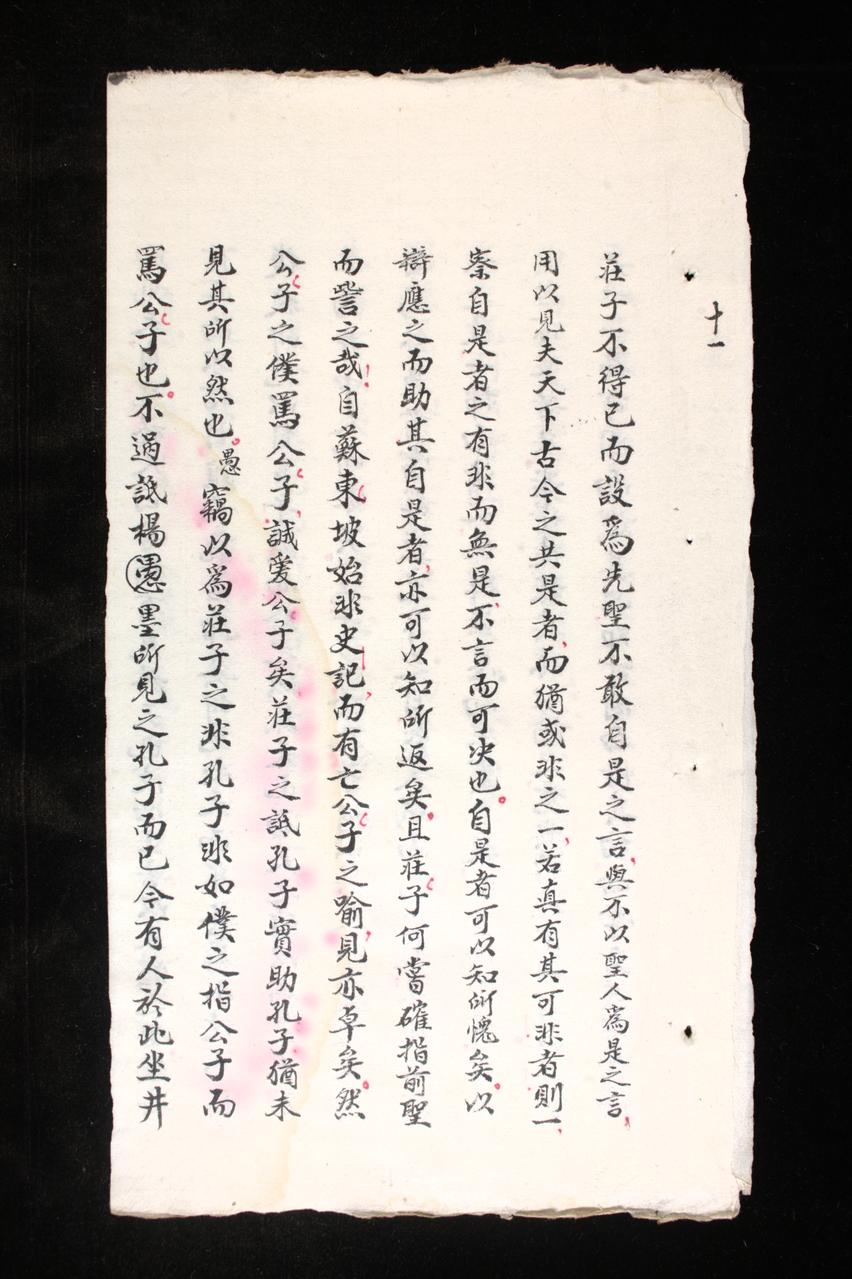 十一
莊子不得已而設為先聖不敢自是之言與不以聖人為是之言
用以見夫天下古今之共是者而猶或非之一若真有其可非者則一
察自是者之有非而無是不言而可决也自是者可以知所愧矣以
辯應之而助其自是者亦可以知所返矣且莊子何嘗確指前聖
而訾之哉自蘇東坡始非史記而有亡公子之喻見亦卓矣然
公子之僕罵公子誠愛公子矣莊子之詆孔子實助孔子猶未
見其所以然也愚竊以為莊子之非孔子非如僕之指公子而
罵公子也不過詆楊愚墨所見之孔子而已今有人於此坐井